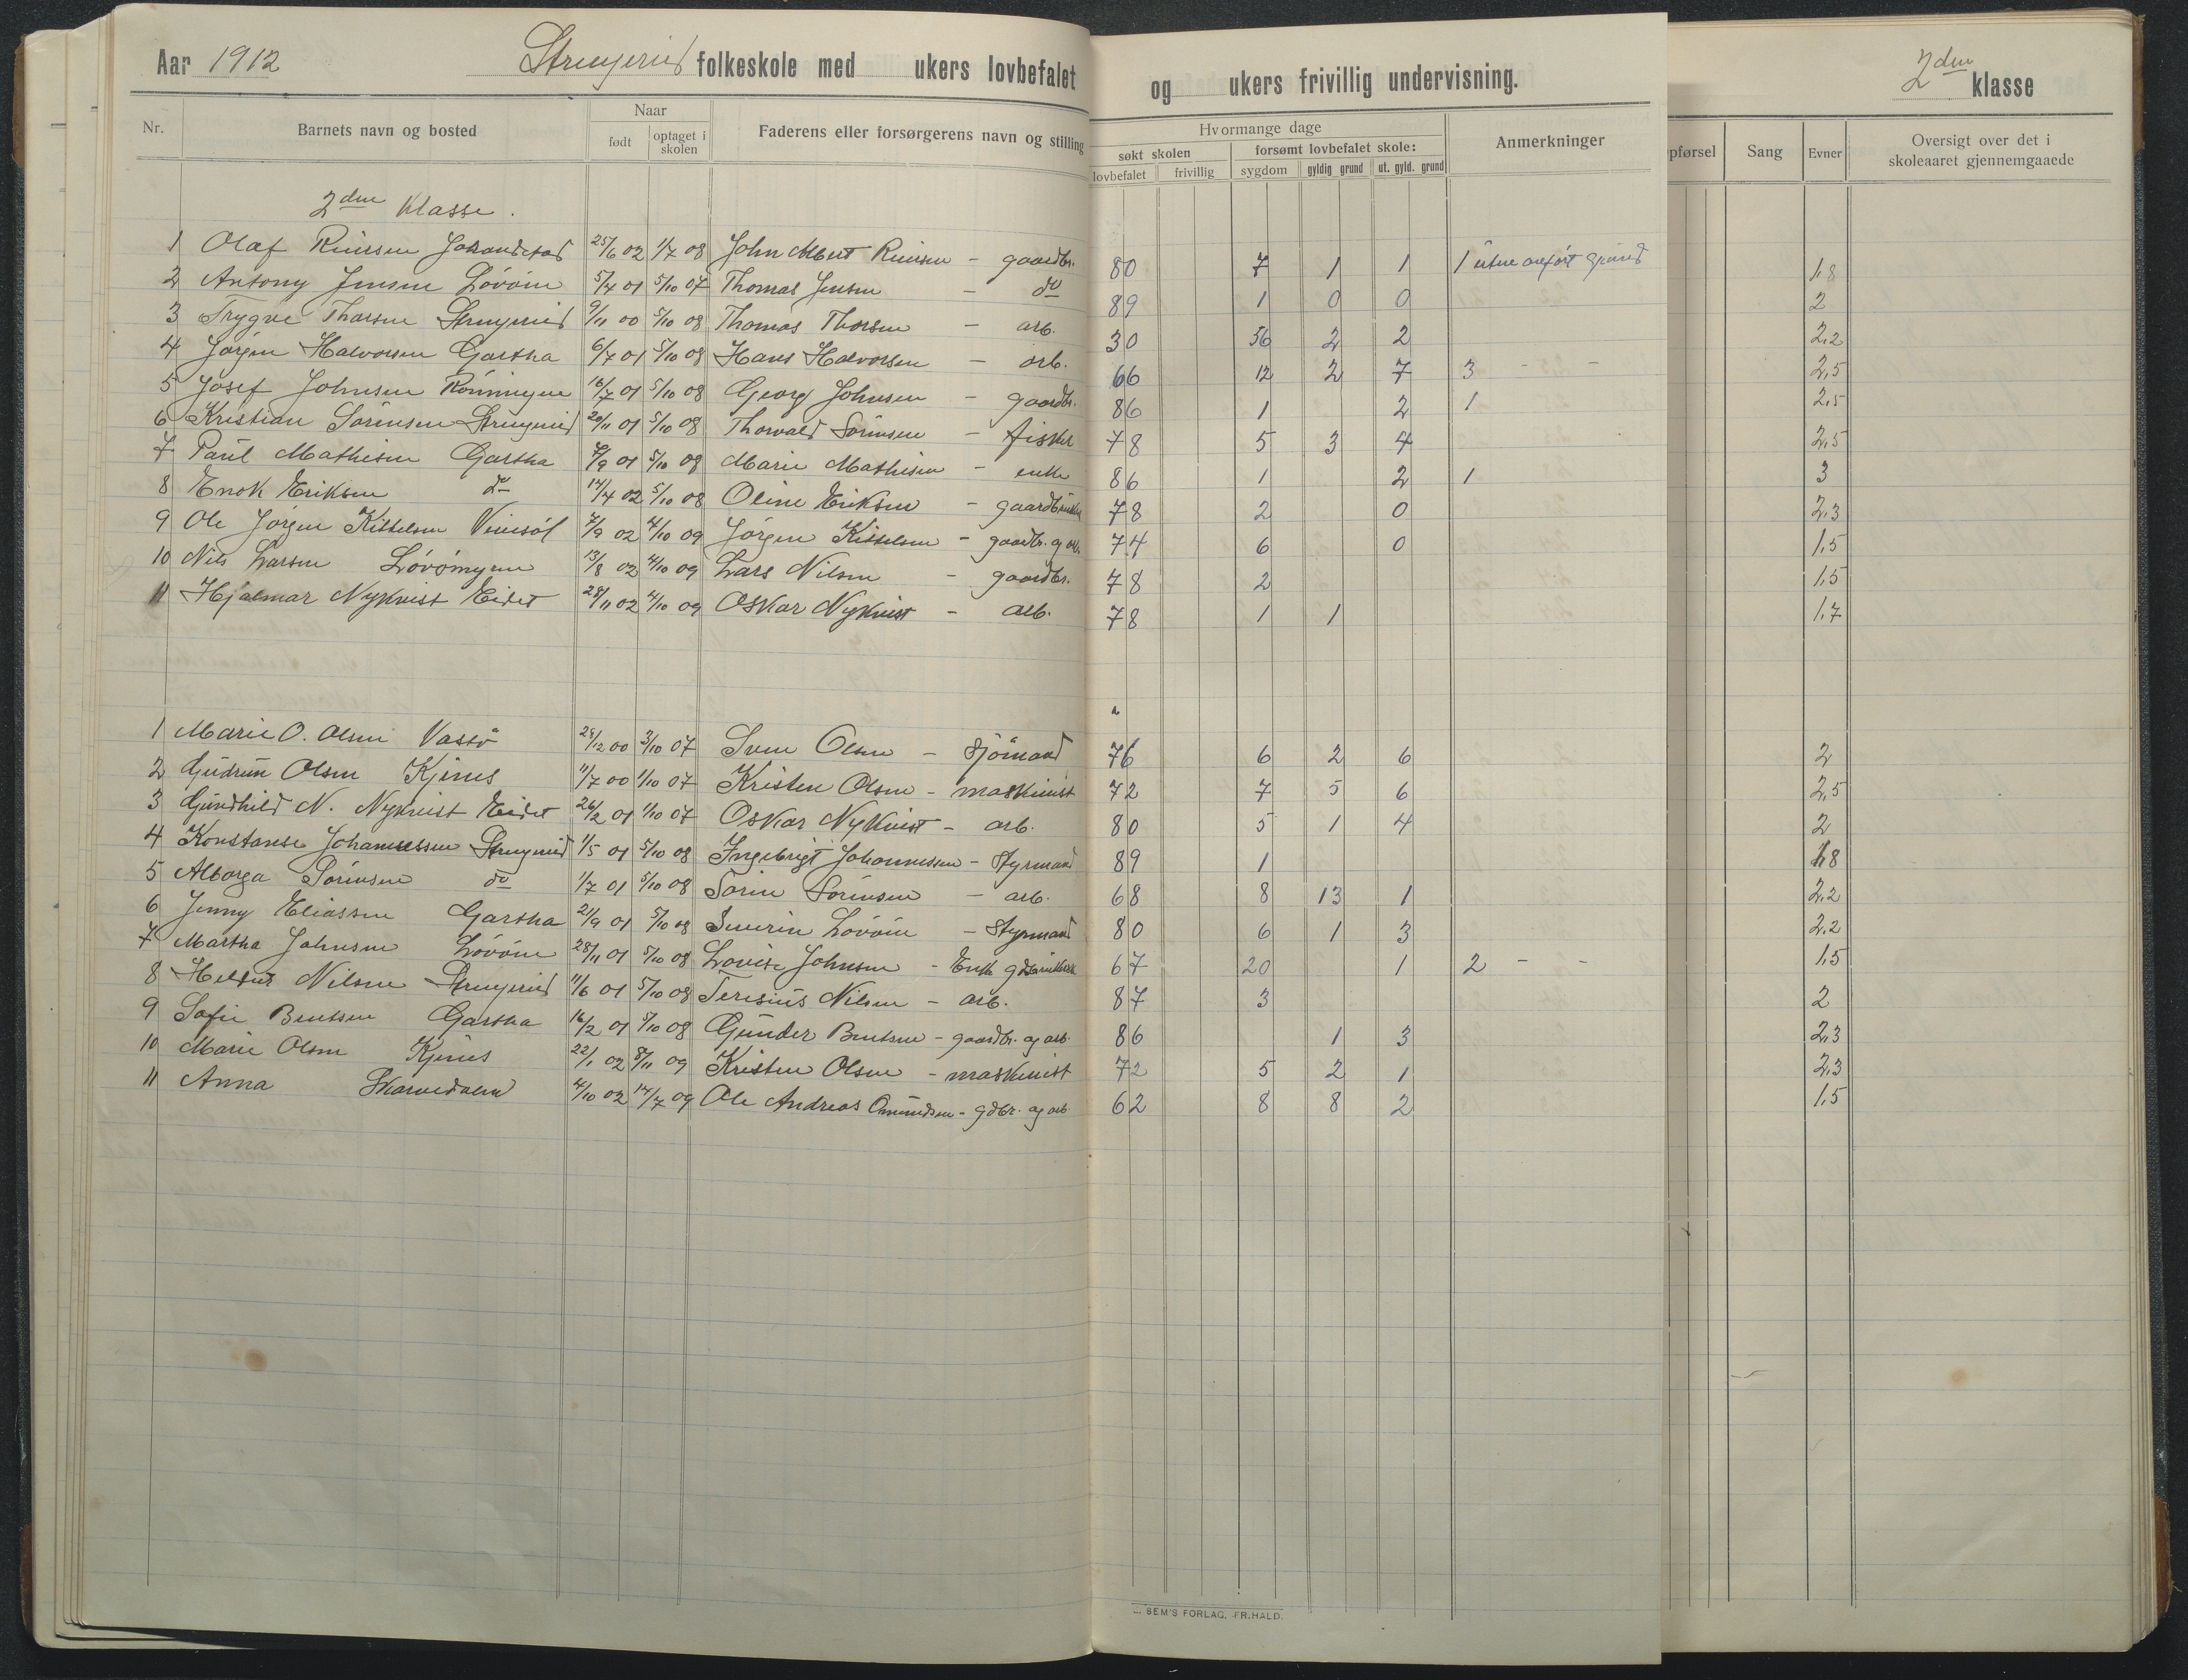 Aar 1912 folkeskole med ukers lovbefalet og ukers frivillig undervisning. 2den klasse
Nr. Barnets navn og bosted Naar født optaget i skolen Faderens eller forsørgerens navn og stilling
Hvormange dage søkt skolen lovbefalet frivillig forsømt lovbefalet skole: sygdom gyldig grund ut. gyld. grund Anmerkninger
pførsel Sang Evner Oversigt over det i skoleaaret gjennemgaaede
2den Klasse.
1 Olaf 25/6 02 1/7 08 John Albert - gaardbr. 80 7 1 1 1 uten anført grund 1,8
2 Antony Jensen 5/4 01 5/10 07 Thomas Jensen - do 89 1 0 0 2
3 Trygve Thorsen 9/11 00 5/10 08 Thomas Thorsen - arb. 30 56 2 2 2,2
4 Jørgen Halvorsen Gartha 6/7 01 5/10 08 Hans Halvorsen - arb. 66 12 2 7 3 - - 2,5
5 Josef Johnsen 16/7 01 5/10 08 Georg Johnsen - gaardbr. 86 1 2 1 2,5
6 Kristian Sørensen 20/11 01 5/10 08 Thorvald Sørensen - fisker 78 5 3 4 2,5
7 Paul Mathisen Gartha 01 5/10 08 Marie Mathisen - enke 86 1 2 1 3
8 Enok Eriksen do 14/4 02 5/10 08 Oline Eriksen - 78 2 0 2,3
9 Ole Jørgen Kittelsen 7/9 02 4/10 09 Jørgen Kittelsen - gaardbr. og arb. 74 6 0 1,5
10 Nils Larsen Løvømyren 13/8 02 4/10 09 Lars Nilsen - gaardbr. 78 2 1,5
11 Hjalmar Nykvist Eidet 28/11 02 4/10 09 Oskar Nykvist - arb. 78 1 1 1,7
1 Marie O. Olsen Vassø 00 3/10 07 Sven Olsen - Sjømand 76 6 2 6 2
2 Gudrun Olsen 11/7 00 1/10 07 Kristen Olsen - maskinist 72 7 5 6 2,5
3 Gundhild N. Nykvist Eidet 26/2 01 1/10 07 Oskar Nykvist - arb. 80 5 1 4 2
4 Konstanse Johannessen 1/5 01 5/10 08 Ingebrigt Johannessen - Styrmand 89 1 1,8
5 Alborga Sørensen do 1/7 01 5/10 08 Søren Sørensen - arb. 68 8 13 1 2,2
6 Jenny Eliassen Gartha 21/9 01 5/10 08 Severin - Styrmand 80 6 1 3 2,2
7 Martha Johnsen 28/11 01 5/10 08 Lovise Johnsen - Enke 67 20 1 2 - - 1,5
8 Nilsen 11/6 01 5/10 08 Teresius Nilsen - arb. 87 3 2
9 Sofie Bentsen Gartha 16/2 01 5/10 08 Gunder Bentsen - gaardbr. og arb. 86 1 3 2,3
10 Marie Olsen 22/1 02 8/11 09 Kristen Olsen - maskinist 72 5 2 1 2,3
11 Anna 4/10 02 14/7 09 Ole Andreas Omundsen - gdbr. og arb. 62 8 8 2 1,5
SEM'S FORLAG, FR.HALD.